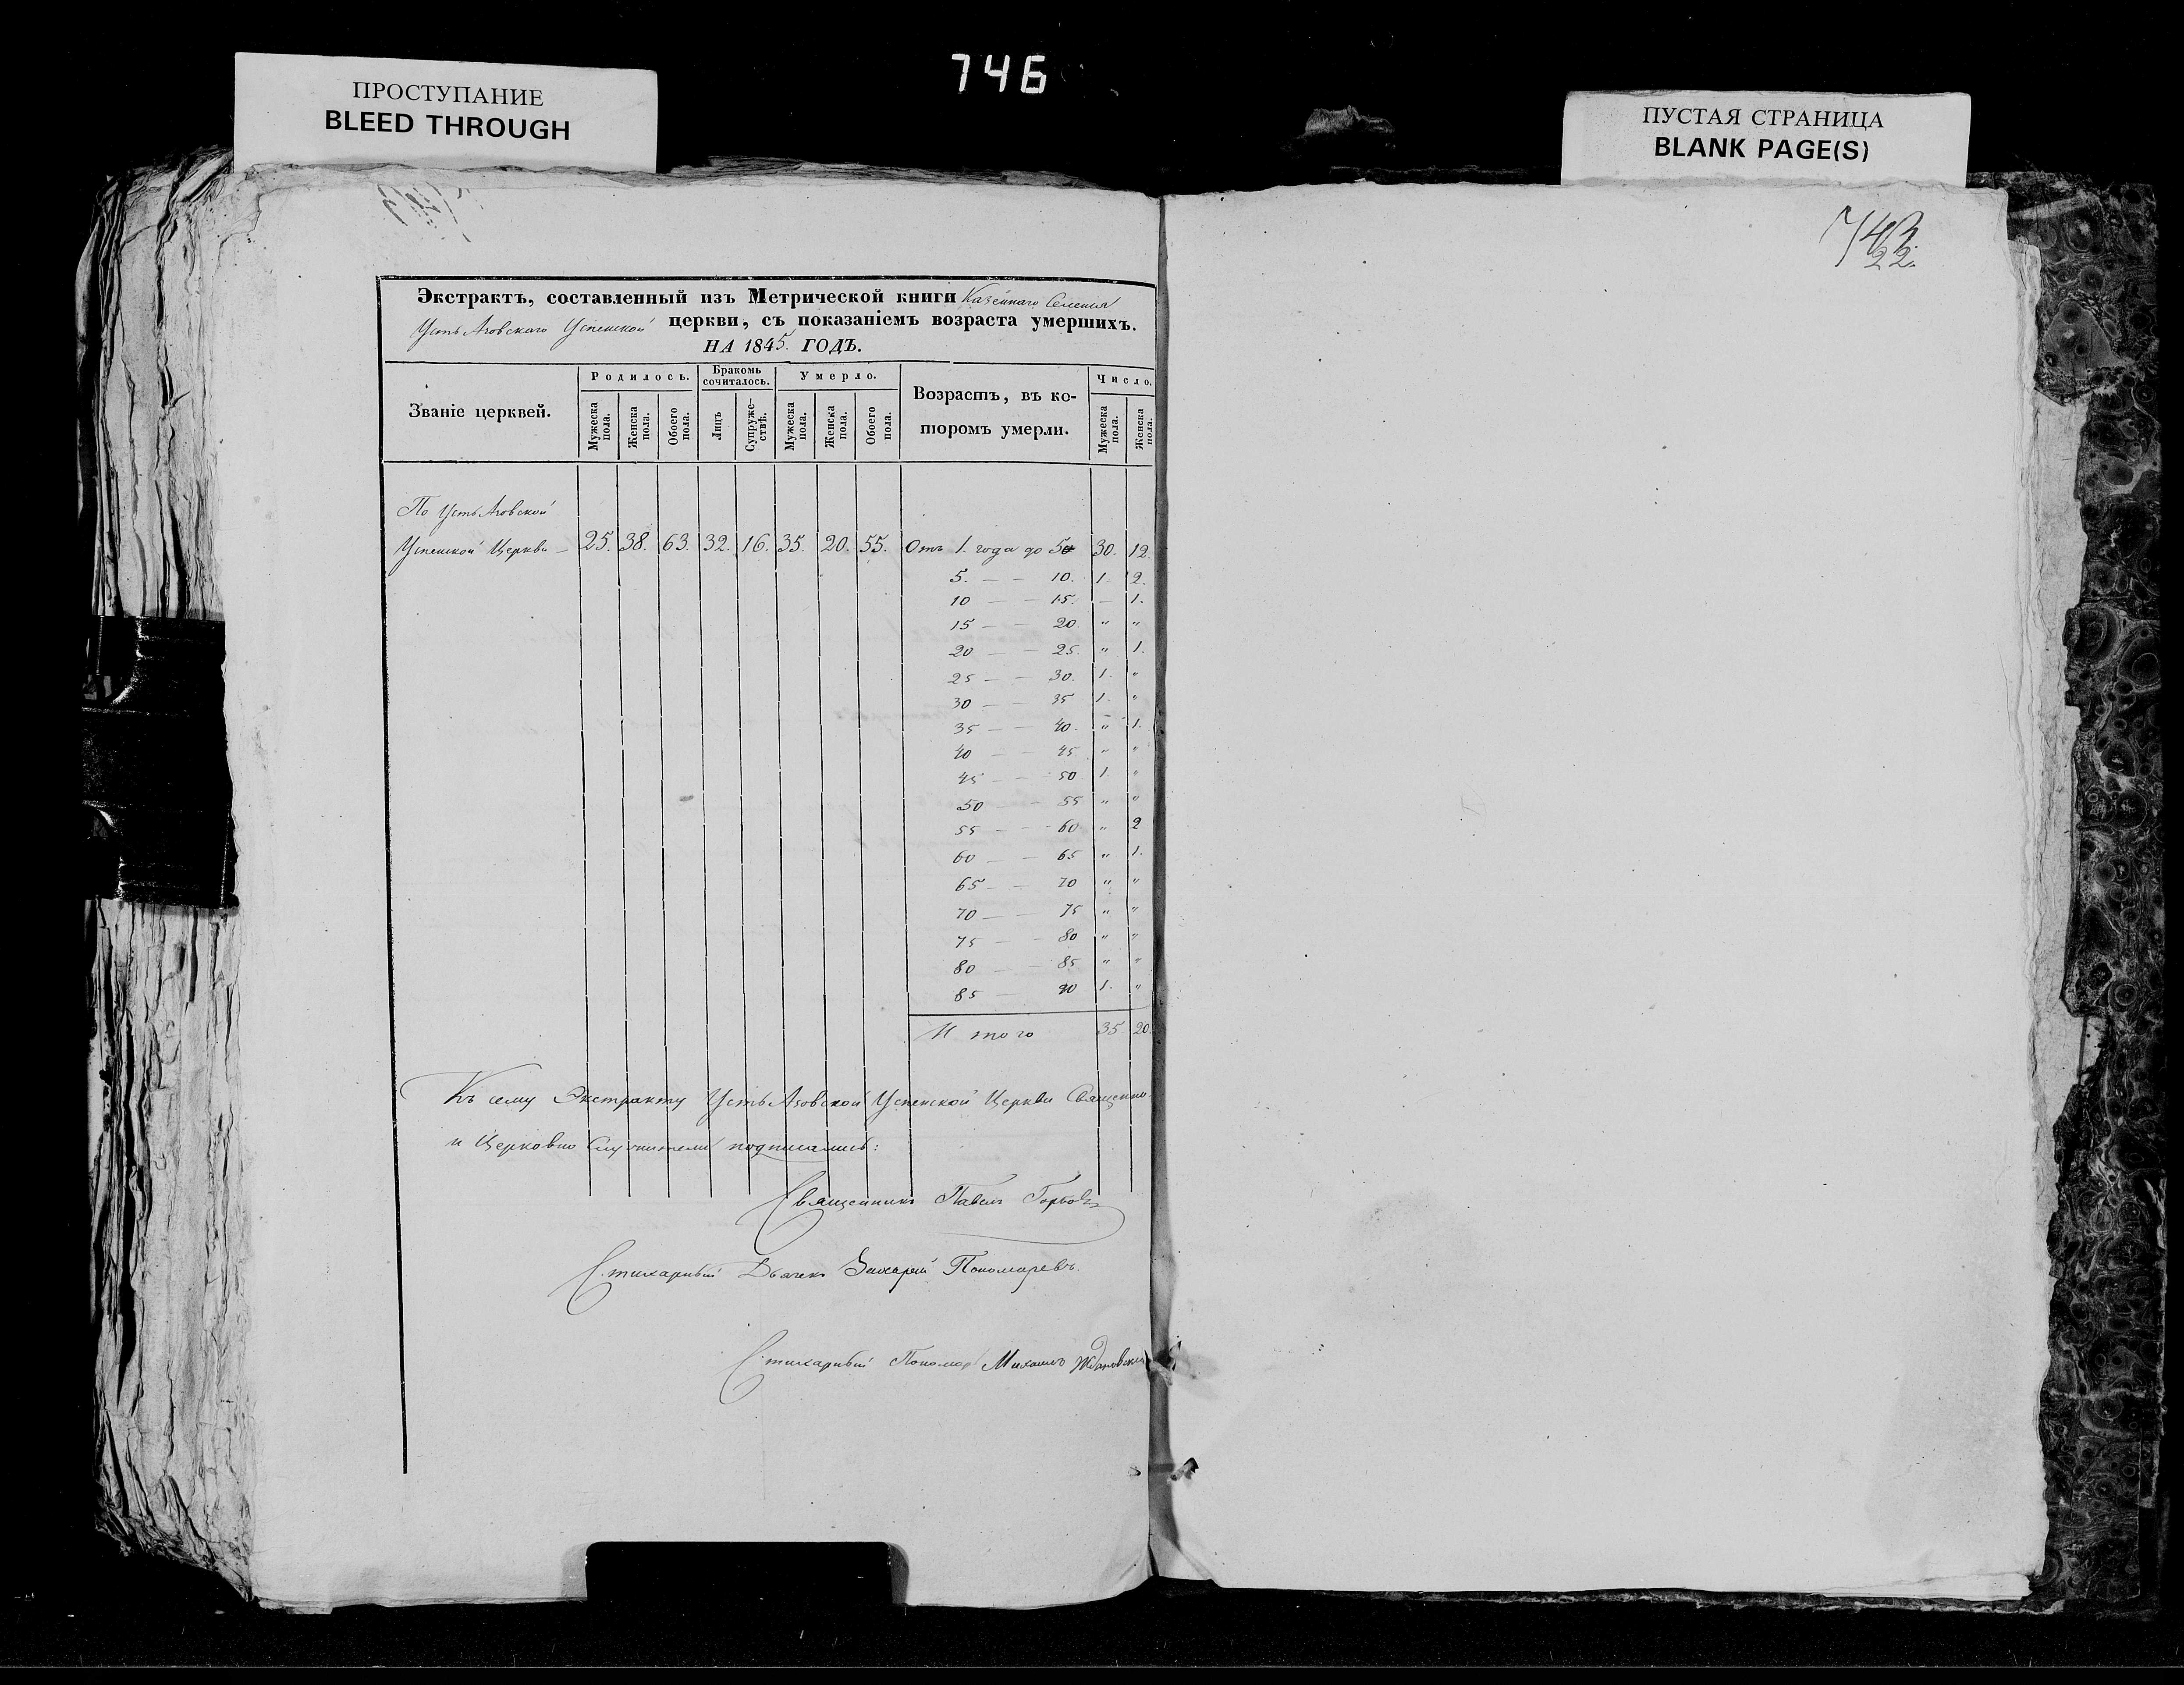 746
ПРОСТУПАНИЕ
BLEED THROUGH
ПУСТАЯ СТРАНИЦА
BLANK PAGE(S)
743
22.
Экстрактъ, составленный изъ Метрической книги Казеннаго Селенія
Усть Азовскаго Успенской церкви, съ показаніемъ возраста умершихъ.
НА 1845. ГОДЪ.
Званіе церквей. Родилось. Бракомъ сочиталось. Умерло. Возрастъ, въ которомъ умерли. Число.
Мужеска пола. Женска пола. Обоего пола. Лицъ Супружествъ. Мужеска пола. Женска пола. Обоего пола. Мужеска пола. Женска пола.
По Усть Азовской
Успенской Церкви – 25. 38. 63. 32. 16. 35. 20. 55. Отъ 1. года до 5 30. 12.
5. — — 10. 1 2.
10 — — 15. — 1.
15 — 20. " "
20 — — 25. " 1.
25 — — 30. 1. "
30 — — 35 1. "
35 — — 40. " 1.
40 — 45 " "
45 — — 50 1. "
50 — — 55 " "
55 — — 60 " 2
60 — — 65 " 1.
65 — — 70 " "
70 — — 75 " "
75 — — 80 " "
80 — — 85 " "
85 — 90 1. "
Итого 35 20.
Къ сему Экстракту Усть Азовской Успенской Церкви Священно
и Церковно Служители подписались:
Священникъ Павелъ
Стихарный Дьячекъ Захарій Пономаревъ.
Стихарный Пономарь Михаилъ